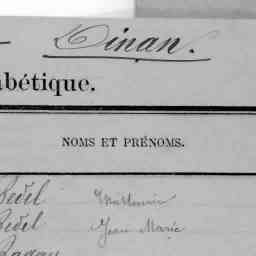 Dinan.
abétique.
NOMS ET PRÉNOMS.
Bedel Mathurin
Bedel Jean Marie